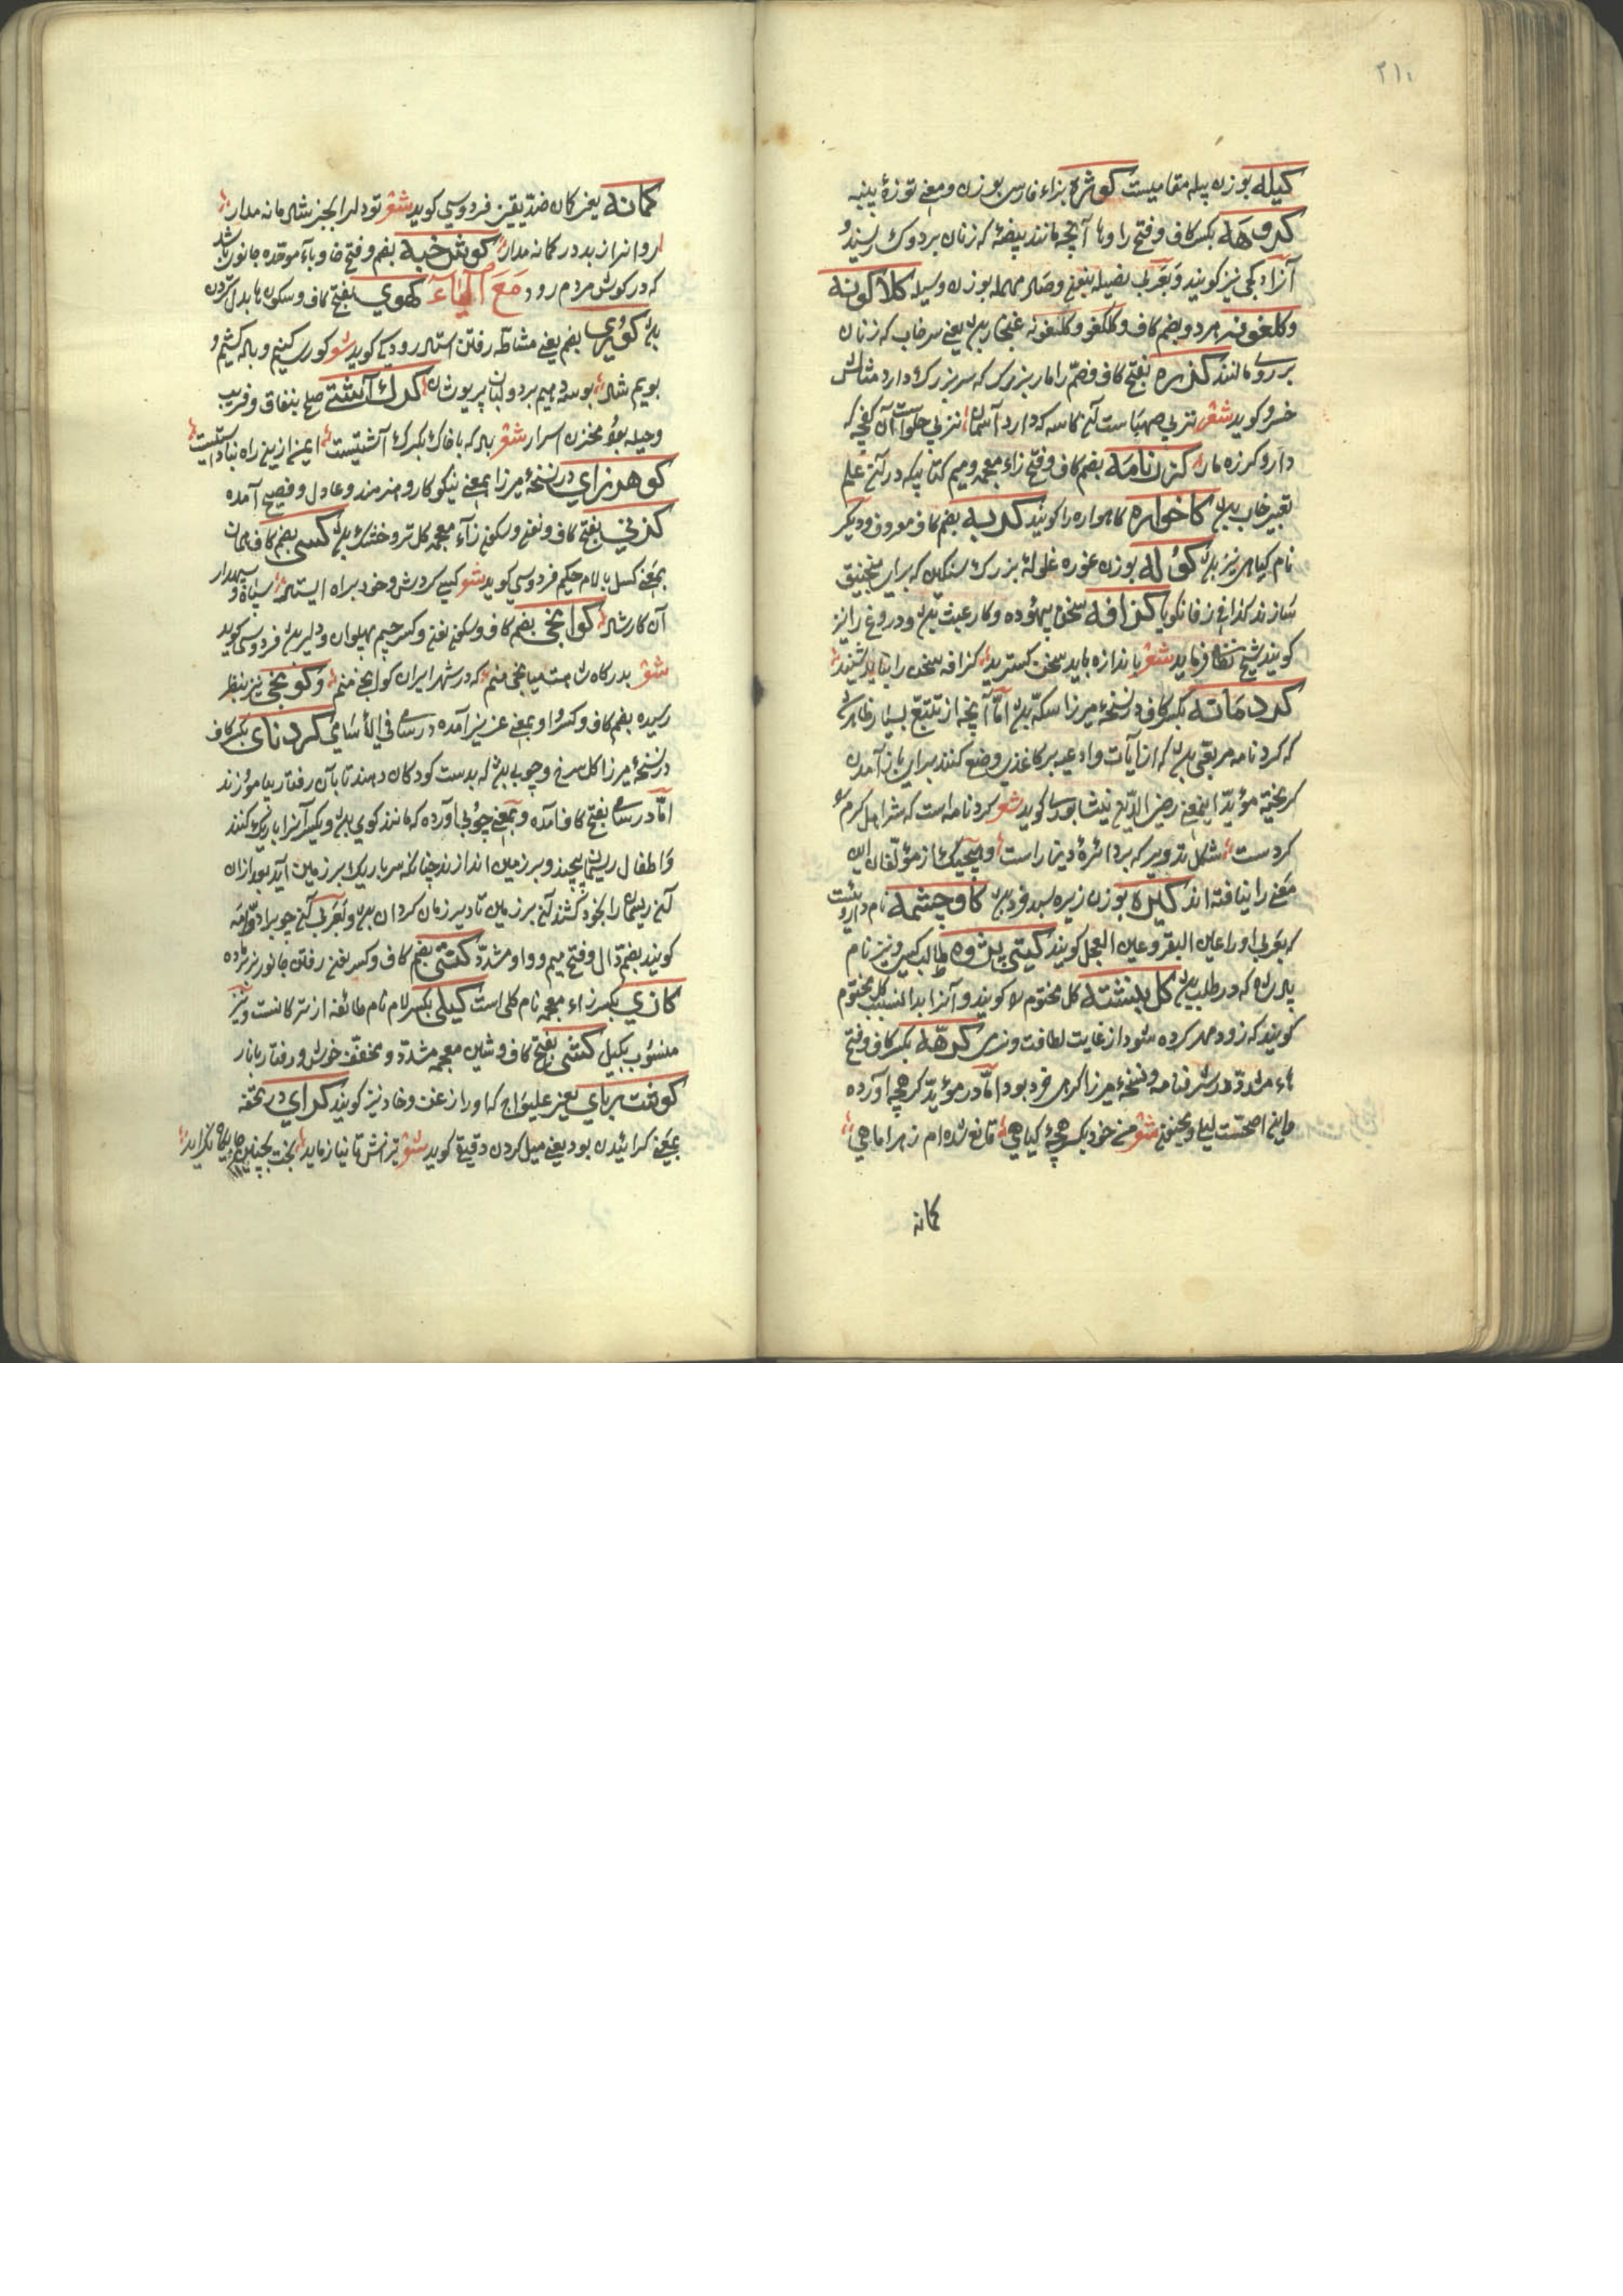 ۲۱۰
کیله بوزن پیله مقامیست کوژه بزاء فارسی بوزن و معنی توزهٔ پنبه
کروهه بکسر کاف و فتح را و ها آنچه مانند بیضهٔ که زنان بر دوک ریسند و
آنرا دکجی نیز کویند و بعربی نصیله بفتح و صاد مهمله بوزن وسیله کلاکونه
و کلغونه هر دو بضم کاف و کلکغو و کلنغونه غنجار باشد یعنی سرخاب که زنان
بر روی مالند کرزه بفتح کاف و ضم را مار بزرک که سر بزرک دارد مثالش
خسرو کوید شعر تربی صهباست آن کاسه که دارد آسمان تربی حلواست آن کفچه که
دارو کرزه مار کزن نامه بضم کاف و فتح زاء معجمه و میم کتابیکه در آن علم
تعبیر خواب باشد کاخواره کاهواره را کویند کربه بضم کاف معروف و دیکر
نام کیاهی نیز باشد کوله بوزن غوره غلولهٔ بزرک سنکین که برای منجنیق
سازند کذا فی زفانکویا کزافه سخن بیهوده و کار عبث باشد و دروغ را نیز
کویند شیخ نظامی فرماید شعر باندازه باید سخن کسترید کزافه سخن را نباید شنید
کردمانه بکسر کاف در نسخهٔ میرزا سکه باشد اما آنچه از تتبع بسیار ظاهر شد
که کردنامه مربعی باشد که از آیات و ادعیه بر کاغذی وضع کنند برای باز آمدن
کریخته مؤید این معنی رضی الدین نیشابوری کوید شعر کردنامه است که شد اهل کرم
کردست شکل تزویر که بر دائرهٔ دینار است و هیچیک از مؤلفان این
معنی را نیافته اند کیره بوزن زیره سبد خرد باشد کاوچشمه نام داروئیست
که بعربی او را عین البقر و عین العجل کویند کیتی پژوه طالب کیتی و نیز نام
پادشاه که در طلب باشد کل نبشته کل مختوم را کویند و آنرا بدان سبب کل مختوم
کویند که زود مهر کرده شود از غایت لطافت و نرمی کرهه بکسر کاف و فتح
هاء مشدده در شرفنامه و نسخهٔ میرزا کره خرد بود اما در مؤید کرهچه آورده
و این اصحست لیلی و مجنون شعر من خود بکرهچهٔ کیاهی قانع شده ام ز هر اماهی
کمانه
کمانه یعنی کمان ضد یقین فردوسی کوید شعر تو دل را بجز شادمانه مدار
روانرا ز بد در کمانه مدار کوش خبه بضم و فتح خا و باء موحده جانوریست باشد
که در کوش مردم رود مع الیاء کهوی بفتح کاف و سکون ها بدل کردن
باشد کوری بضم یعنی مشاطه رفتن استاد رودکی کوید شعر کوری کنیم و باده کشیم و
بویم شاد بوسه دهیم بر دو لبان پریوشان کرک آشتی صلح بنفاق و فریب
و حیله بود مخزن اسرار شعر باد که با خاک بکرک آشتیست ایمن ازین راه نباداستیست
کوهرزای در نسخهٔ میرزا بمعنی نیکو کار و هنرمند و عادل و فصیح آمده
کزنی بفتح کاف و نون و سکون زاء معجمه کل تر و خشک باشد کسی بضم کاف همان
بمعنی کسل با لام حکیم فردوسی کوید شعر کسی کردش و خود براه ایستاد سپاه و سپهدار
آن کار شاد کوانجی بضم کاف و سکون نون و کسر جیم پهلوان و دلیر باشد فردوسی کوید
شعر بدرکاه شاهت میانجی منم که در شهر ایران کوانجی منم و کونجی نیز بنظر
رسیده بضم کاف و کسر واو بمعنی عزیز آمده در سامی فی الاسامی کردنای بکسر کاف
در نسخهٔ میرزا کل سرخ و چوبی باشد که بدست کودکان دهند تا بآن رفتار بیاموزند
اما در سامی بفتح کاف آمده و بمعنی چوبی آورده که مانند کوی باشد و یکسر آنرا باریک کنند
و اطفال ریسمان پیچند و بر زمین اندازند چنانکه سر باریک بر زمین آید بعد ازان
آن ریسمان را بخود کشند آن بر زمین تا دیر زمان کردان باشد و بعربی آن چوب را دوامه
کویند بضم دال و فتح میم و واو مشدد کشی بضم کاف و کسر یعنی رفتن جانور نر بر ماده
کازی بکسر زاء معجمه نام کلی است کیلی بکسر لام نام طائفه از ترکانست و نیز
منسوب بکیل کشی بفتح کاف و شین معجمه مشدد و مخفف خوش و رفتار بناز
کوشت ربای یعنی غلیواج که او را زغن و خاد نیز کویند کرای در تحفه
بمعنی کرائیدن بود یعنی میل کردن دقیقی کوید شعر